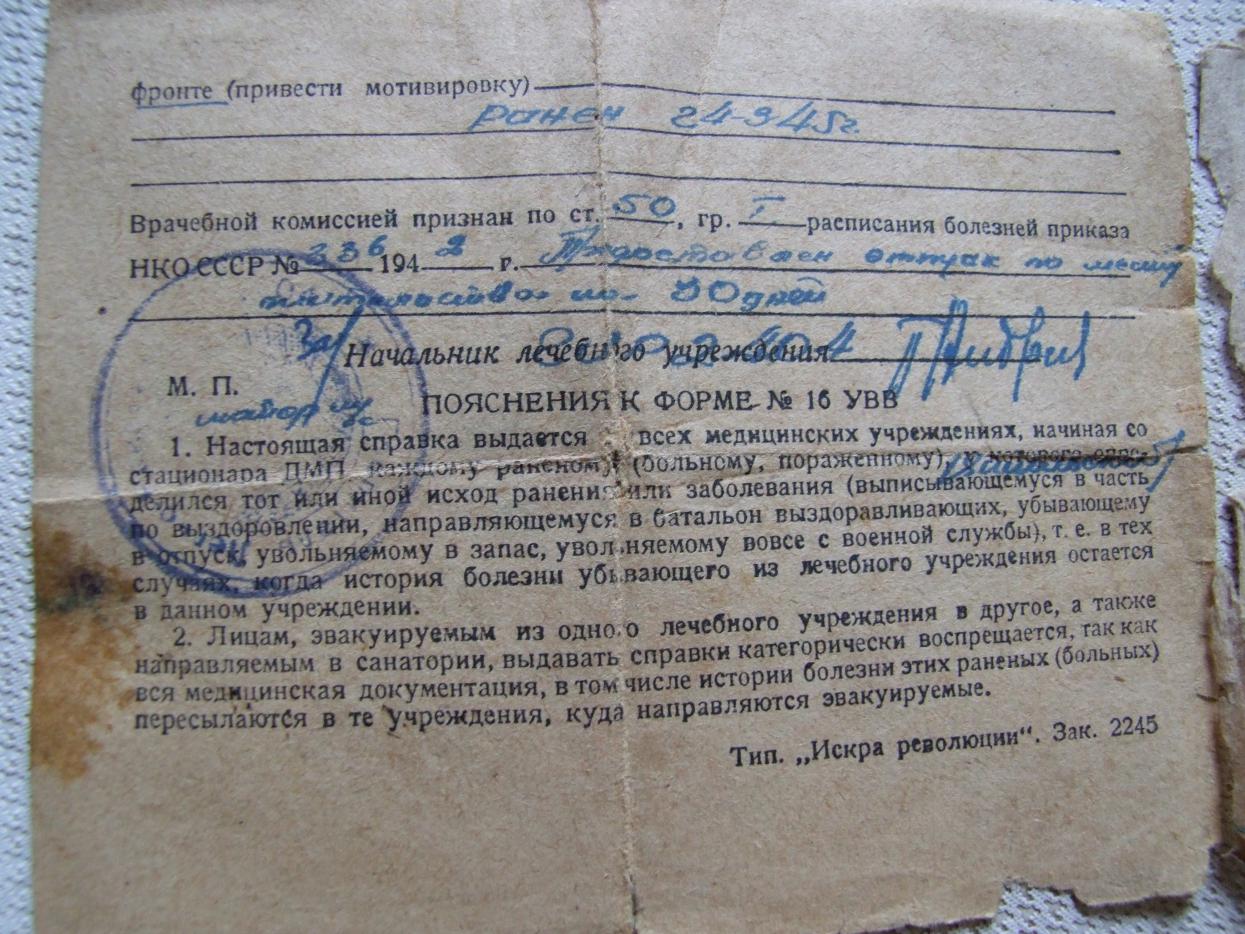 фронте (привести мотивировку)
ранен 24-3-45г.
Врачебной комиссией признан по ст. 50, гр. I расписания болезней приказа
НКО СССР № 336 1942 г. Предоставлен отпуск по месту
жительства на дней
За/ Начальник лечебного учреждения
М. П.
майор м/с
ПОЯСНЕНИЯ К ФОРМЕ № 16 УВВ
1. Настоящая справка выдается всех медицинских учреждениях, начиная со
стационара ДМП каждому раненому (больному, пораженному), у которого опре-
делился тот или иной исход ранения или заболевания (выписывающемуся в часть
по выздоровлении, направляющемуся в батальон выздоравливающих, убывающему
в отпуск, увольняемому в запас, увольняемому вовсе с военной службы), т. е. в тех
случаях, когда история болезни убывающего из лечебного учреждения остается
в данном учреждении.
2. Лицам, эвакуируемым из одного лечебного учреждения в другое, а также
направляемым в санатории, выдавать справки категорически воспрещается, так как
вся медицинская документация, в том числе истории болезни этих раненых (больных)
пересылаются в те учреждения, куда направляются эвакуируемые.
Тип. „Искра революции“. Зак. 2245